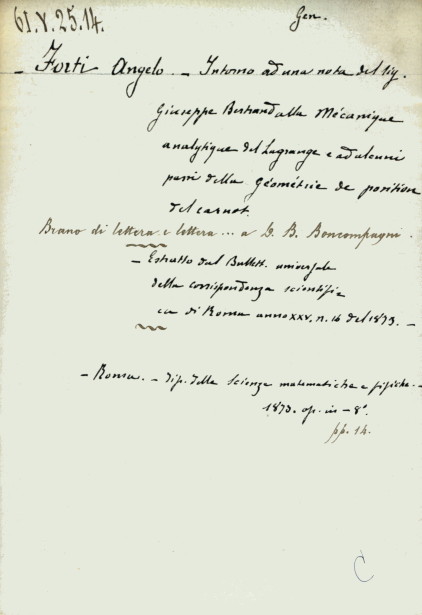 61.V.25.14.
Gen.
- Forti Angelo. - Intorno ad una nota del sig.
Giuseppe Bertrand alla Mécanique
analytique del Lagrange e ad alcuni
passi della Géométrie de position
del Carnot.
Brano di lettera e lettera ... a D. B. Boncompagni.
- Estratto dal Bullett. universale
della corrispondenza scientifi
ca di Roma anno XXV, n. 16 del 1873. -
- Roma. - Tip. delle scienze matematiche e fisiche. -
1873. op. in - 8°.
pp. 14.
C